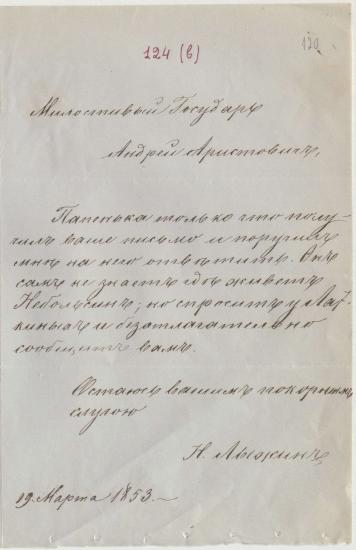 124 (в)
120
Милостивый Государь
Андрей Аристовичъ,
Папенька только что полу-
чилъ ваше письмо и поручилъ
мнѣ на него отвѣтить. Онъ
самъ не знаетъ гдѣ живетъ
Небольсинъ; но спроситъ у
и безотлагательно
сообщитъ вамъ.
Остаюсь вашимъ покорнымъ
слугою
Н. Лыжинъ
19 Марта 1853.